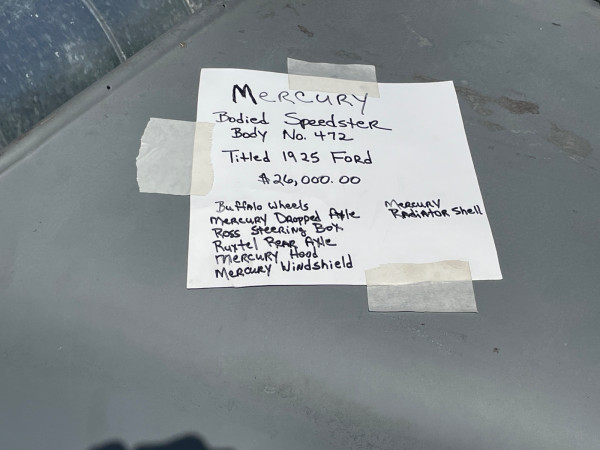 Mercury
Bodied Speedster
Body No. 472
Titled 1925 Ford
$26,000.00
Buffalo Wheels
Mercury Dropped Axle
Ross Steering Box
Ruxtel Rear Axle
Mercury Hood
Mercury Windshield
Mercury
Radiator Shell